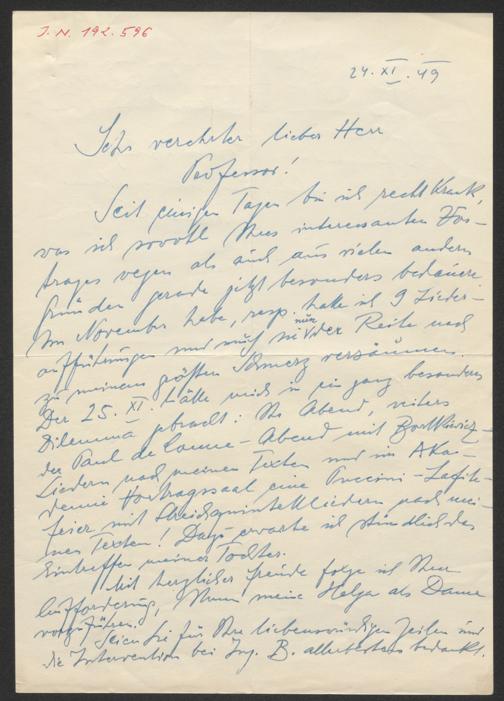 J. N. 192.596
24. XI. 49
Sehr verehrter lieber Herr
Professor!
Seit einigen Tagen bin ich recht krank,
was ich sowohl Ihres interessanten Vor-
trages wegen als auch aus vielen andern
Gründen gerade jetzt besonders bedauere.
Im November habe, resp. hatte ich 9 Lieder-
aufführungen und muß sie nun der Reihe nach
zu meinem größten Schmerz versäumen.
Der 25. XI. hätte mich in ein ganz besonderes
Dilemma gebracht: Ihr Abend, weiters
der Paul de Conne-Abend mit Bortkiewicz-
Liedern nach meinen Texten und im Aka-
demie Vortragssaal eine Puccini-Lafite-
feier mit Streichquintettliedern nach mei-
nen Texten! Dazu erwarte ich stündlich das
Eintreffen meiner Tochter.
Mit herzlicher Freude folge ich Ihrer
Aufforderung, Ihnen meine Helga als Dame
vorzuführen.
Seien Sie für Ihre liebenswürdigen Zeilen und
die Intervention bei Ing. B. allerbestens bedankt.